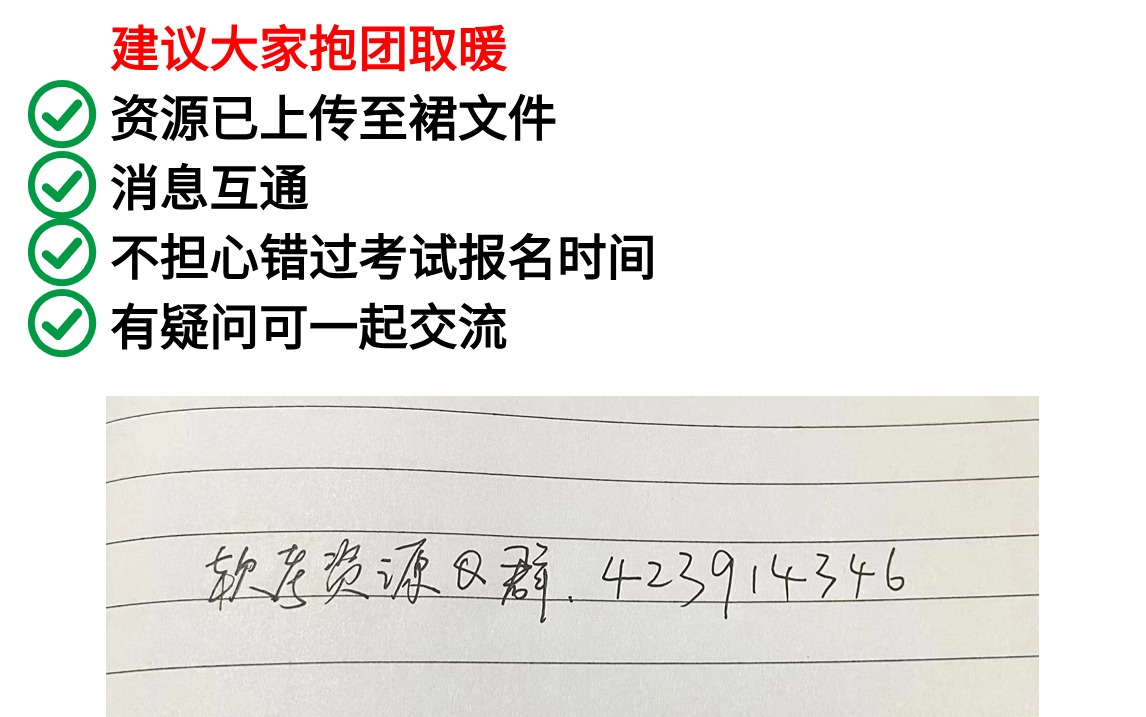 建议大家抱团取暖
资源已上传至裙文件
消息互通
不担心错过考试报名时间
有疑问可一起交流
软考资源Q群.423914346